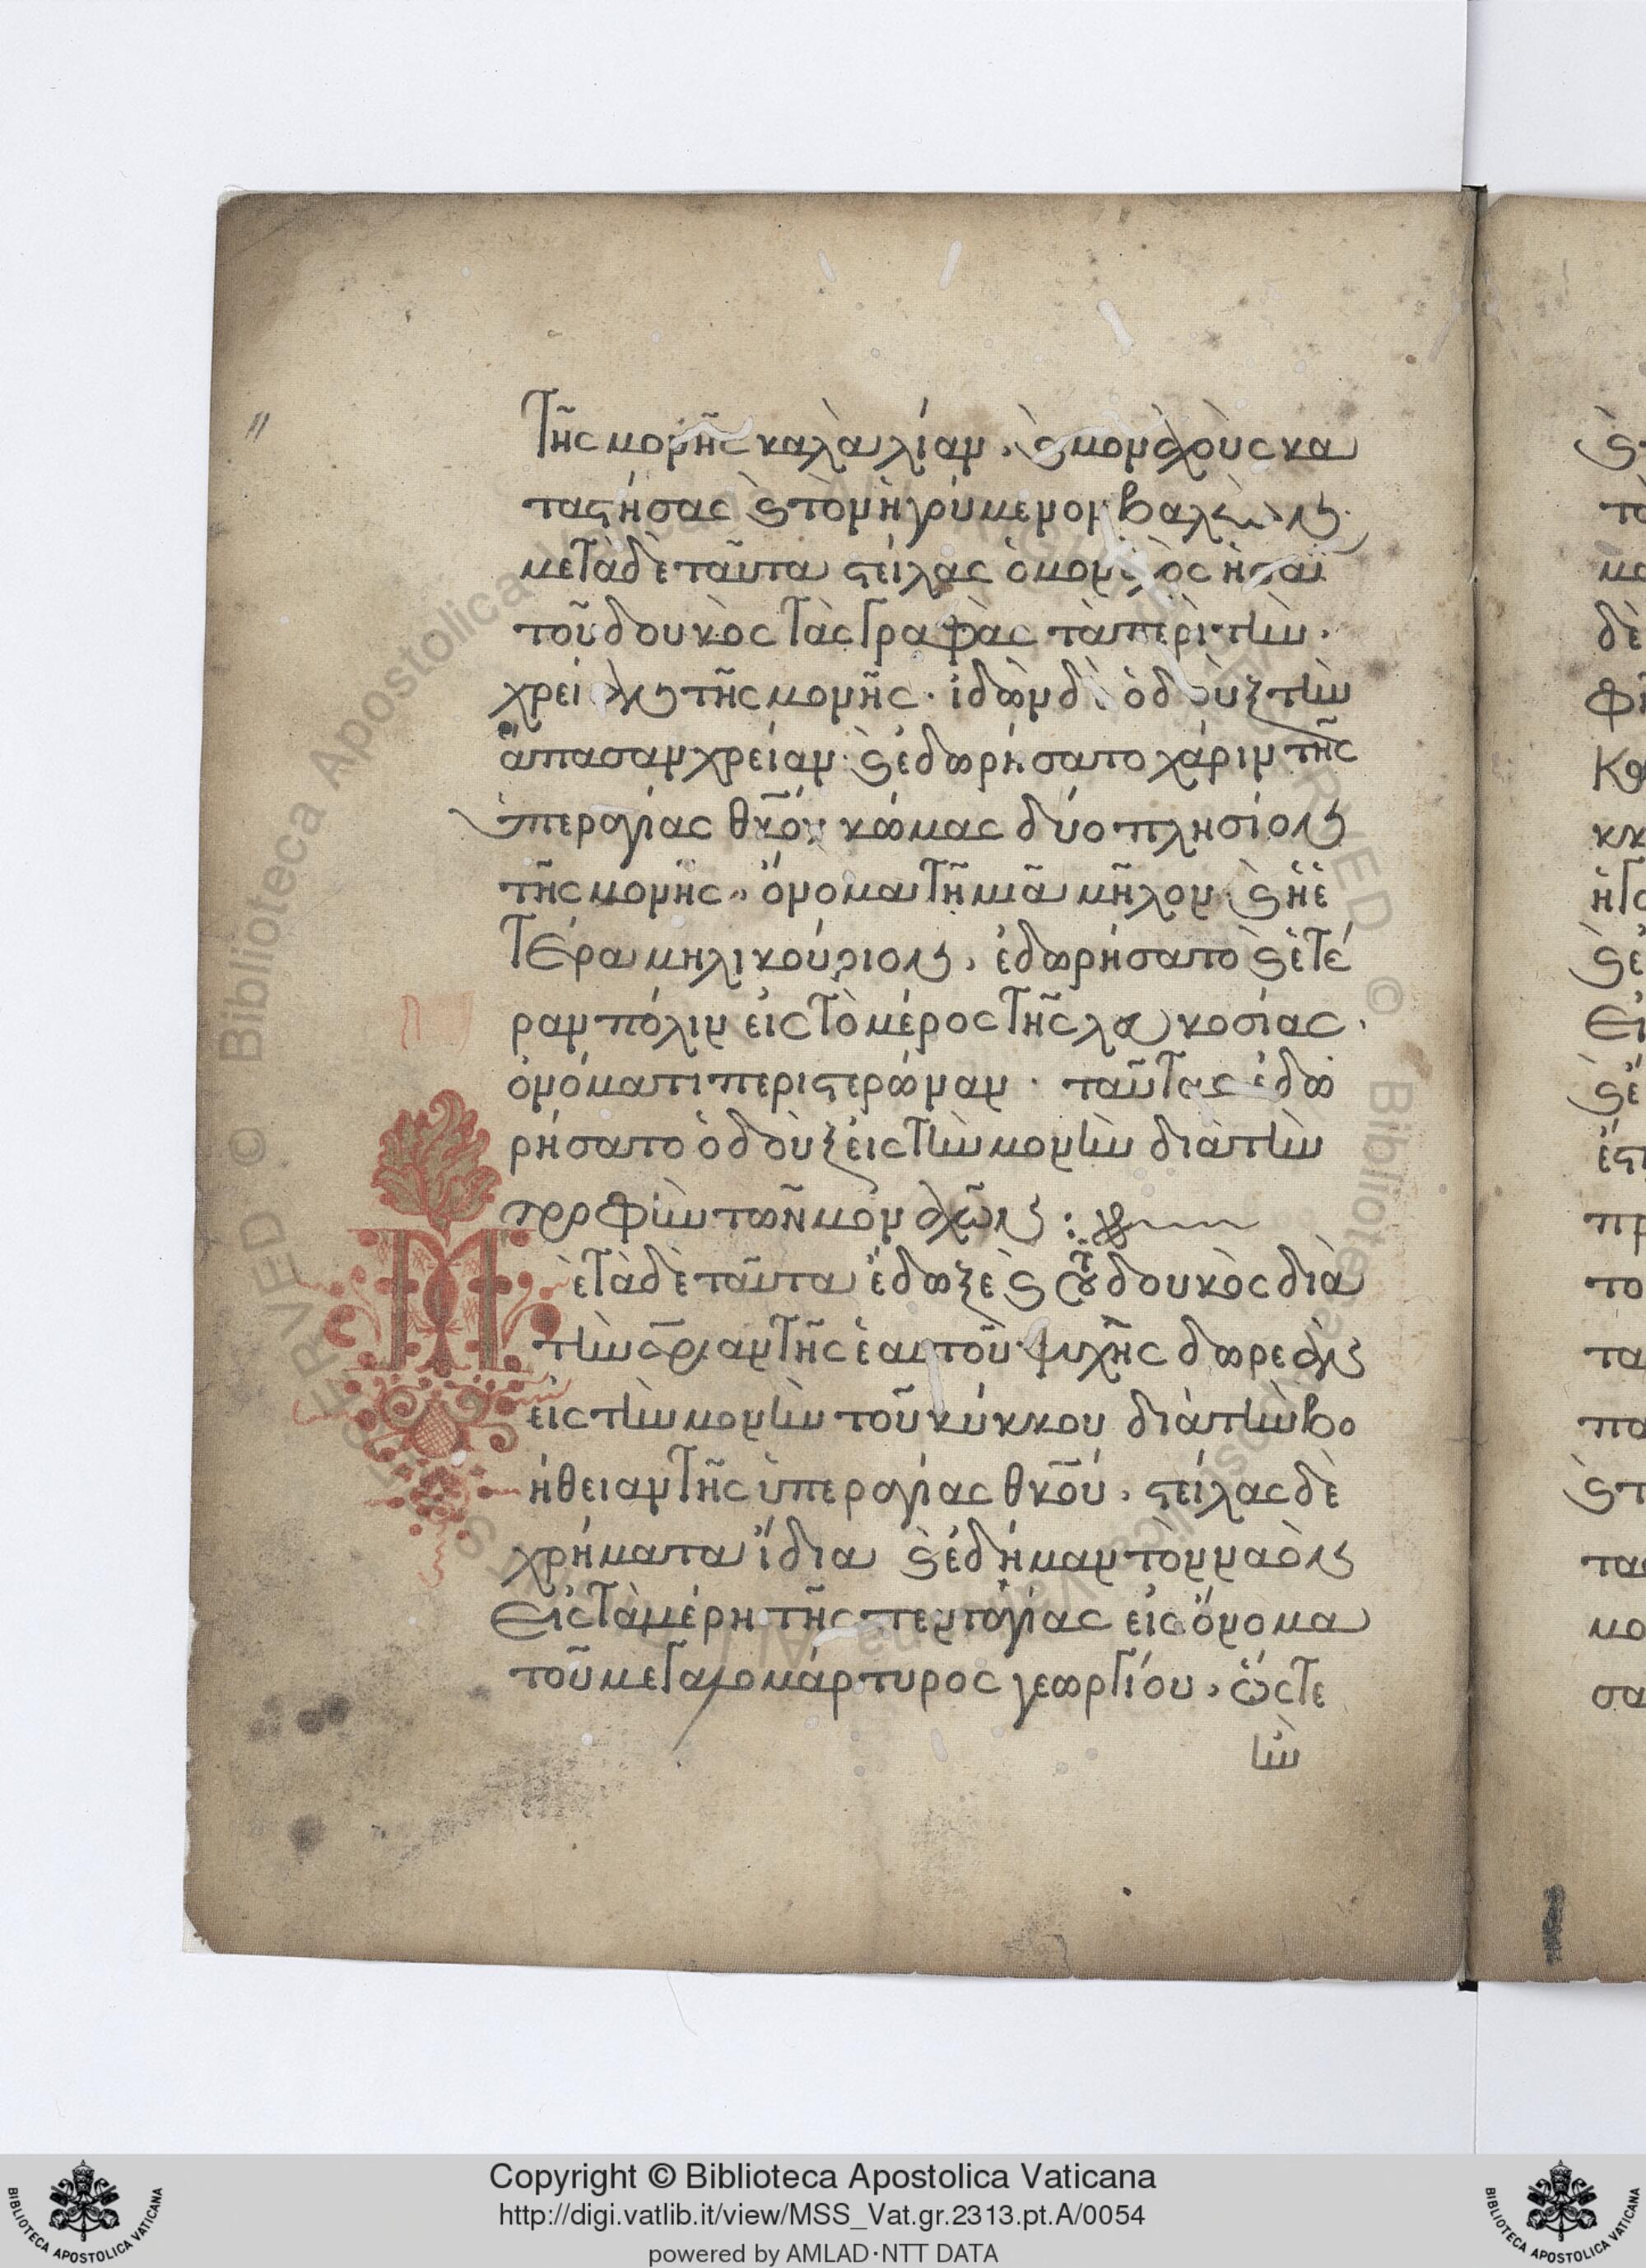 τῆς μονῆς καλὰ λίαν, καὶ μοναχοὺς κα
ταστήσας καὶ τὸν ἡγούμενον βαλὼν.
μετὰ δὲ ταῦτα στείλας ὁ μοναχὸς
τοῦ δουκὸς τὰς γραφὰς τὰ περὶ τὴν.
χρείαν τῆς μονῆς. ἰδὼν δὲ ὁ δοὺξ τὴν
ἅπασαν χρείαν. καὶ ἐδωρήσατο χάριν τῆς
ὑπεραγίας θκου κώμας δύο πλησίον
τῆς μονῆς, ὄνομα τῆ μιᾶ μῆλον. καὶ ἡ ἑ
τέρα μηλικούριον, ἐδωρήσατο καὶ ἑτέ
ραν πόλιν εἰς τὸ μέρος τῆς λακοσίας.
ὀνόματι περιστερώναν. ταῦτας ἐδω
ρήσατο ὁ δοὺξ εἰς τὴν μονὴν διὰ τὴν
τροφὴν τῶν μοναχῶν :
Μετὰ δὲ ταῦτα ἔδωξε καὶ τοῦ δουκὸς διὰ
τὴν σρίαν τῆς ἑαυτοῦ ψυχῆς δωρεὰν
εἰς τὴν μονὴν τοῦ κύκκου διὰ τὴν βο
ήθειαν τῆς ὑπεραγίας θκου, στείλας δὲ
χρήματα ἴδια καὶ ἐδήμαν τὸν ναὸν
εἰς τὰ μέρη τῆς πενταγίας εἰς ὄνομα
τοῦ μεγαλομάρτυρος γεωργίου, ὥστε
ἣν
Copyright © Biblioteca Apostolica Vaticana
http://digi.vatlib.it/view/MSS_Vat.gr.2313.pt.A/0054
powered by AMLAD·NTT DATA
BIBLIOTECA APOSTOLICA VATICANA
BIBLIOTECA APOSTOLICA VATICANA